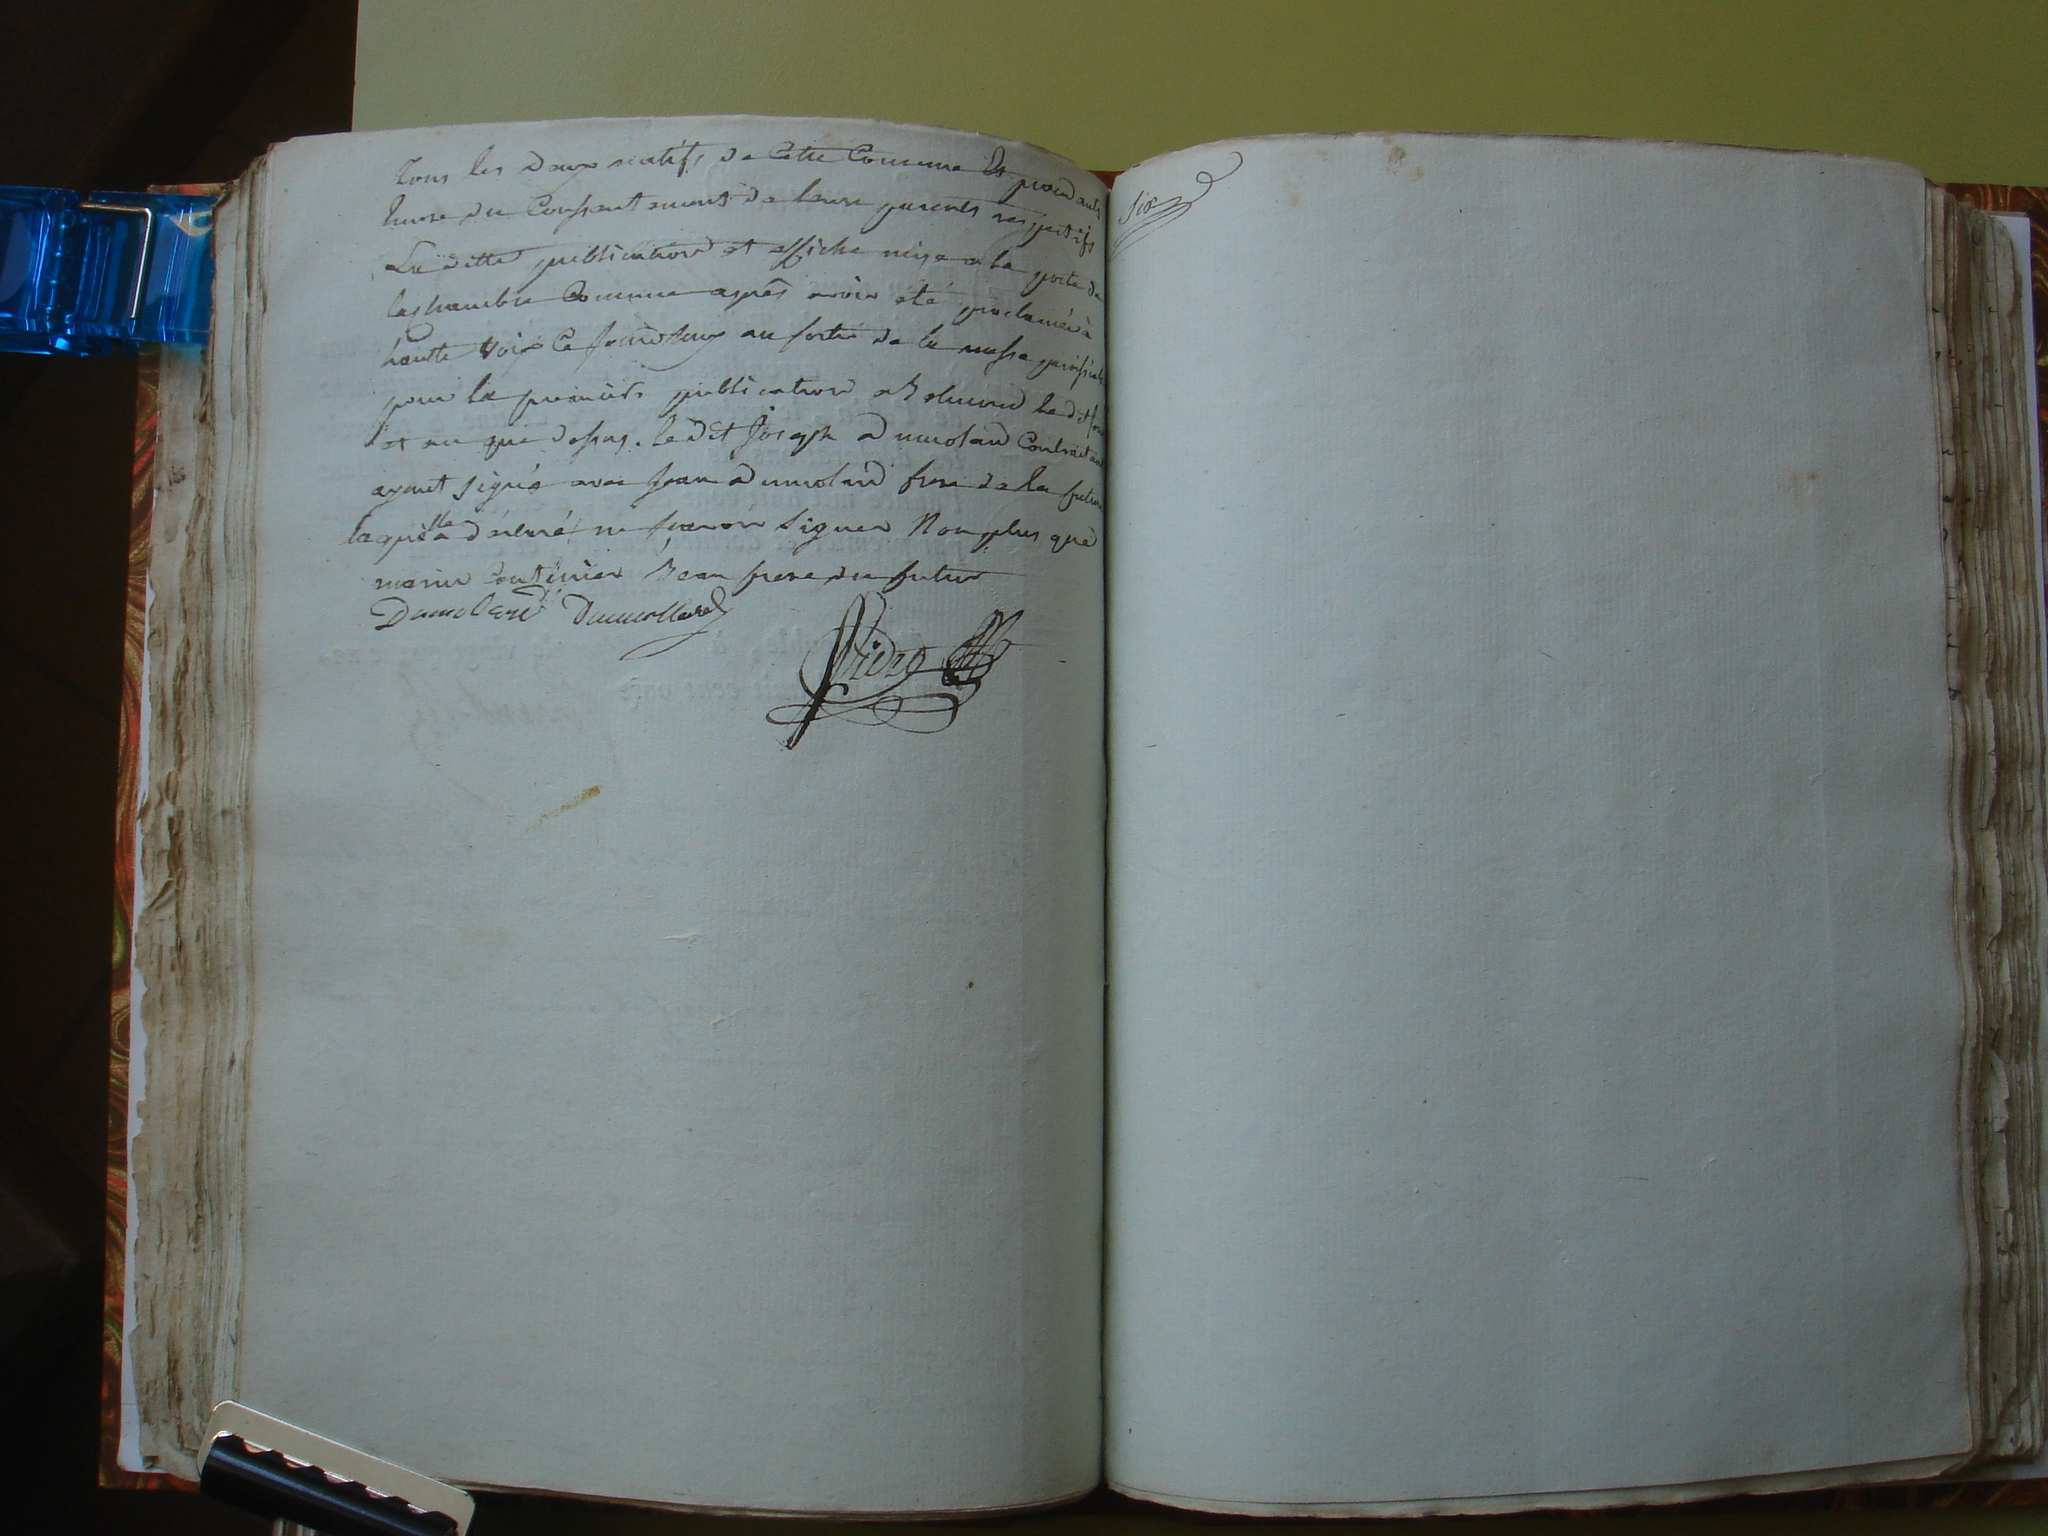 Tous les deux natifs de Cette Commune Et procedants
du Consentement de leurs parents respectifs
La ditte publication et affiche mise a la porte de
la chambre Commune apres avoir été proclamée à
hautte Voix Ce jourdhuy au sortir de la messe
pour la premiere publication a ledit jour
et an que dessus. le dit Joseph Dumolard Contractant
ayant signé avec Jean Dumolard frere de la future
laquelle a déclaré ne scavoir signer Non plus que
beau frere du futur
Dumolard Dumollard
six